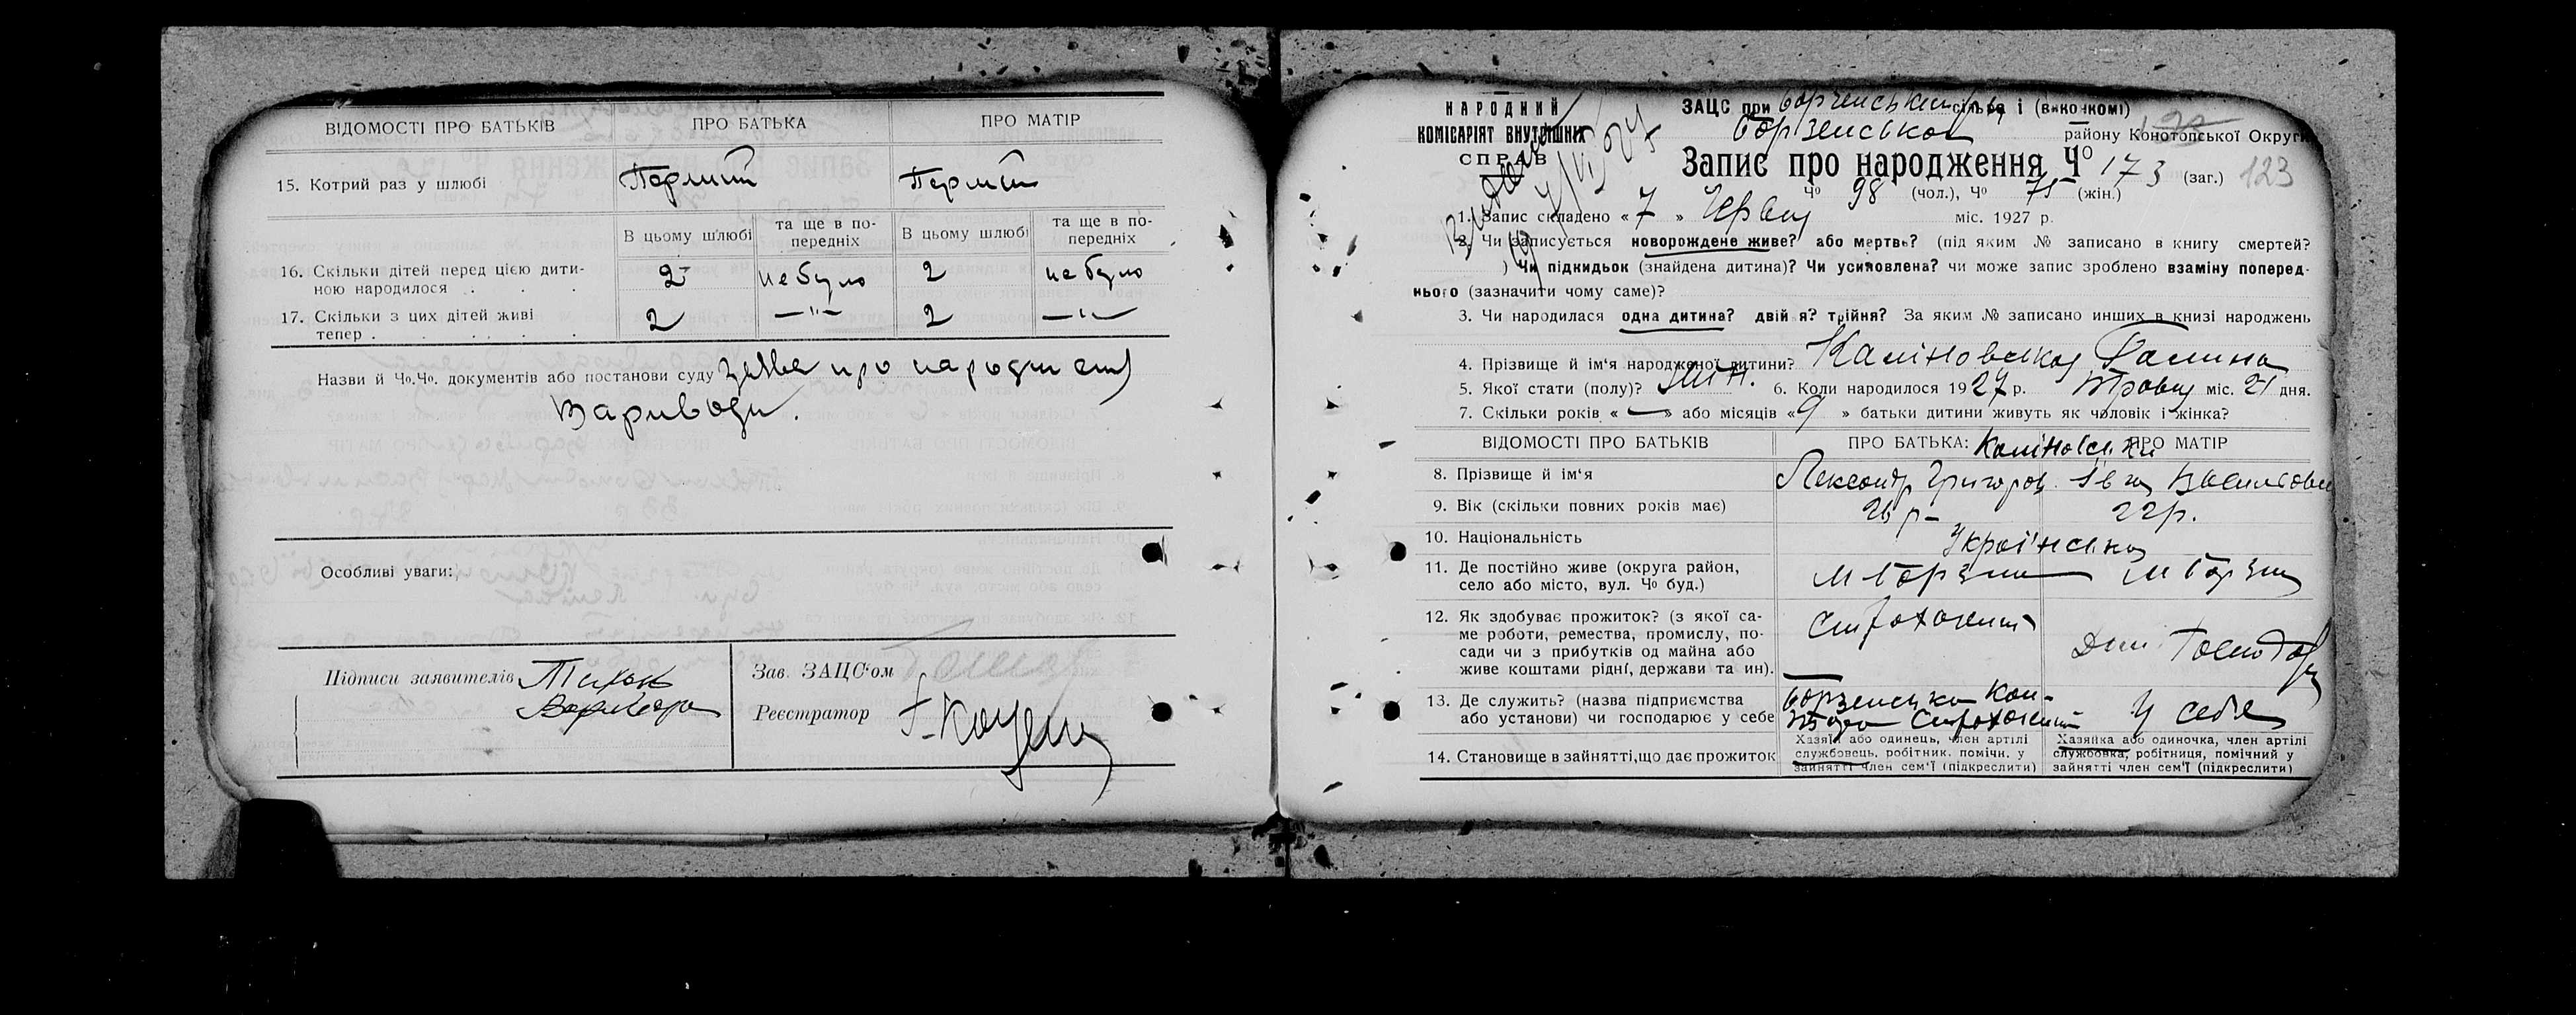 ВІДОМОСТІ ПРО БАТЬКІВ ПРО БАТЬКА ПРО МАТІР
15. Котрий раз у шлюбі Перший Перший
В цьому шлюбі та ще в по-передніх В цьому шлюбі та ще в по-передніх
16. Скільки дітей перед цією дити-
ною народилося . . . 2 не було 2 не було
17. Скільки з цих дітей живі
тепер . . . . . . 2 —"— 2 —"—
Назви й Чо.Чо. документів або постанови суду заява про народження
Вариводи.
Особливі уваги:
Підписи заявителів Тихон
Варивода
Зав. ЗАЦС'ом
Реєстратор
НАРОДНИЙ
КОМІСАРІЯТ ВНУТРІШНІХ
СПРАВ
ЗАЦС при сільра і (виконкомі)
Борзенської району Конотопської Округи
Запис про народження Чо 173 (заг.) 123
Чо 98 (чол.), Чо 75 (жін.)
1. Запис складено « 7 » Червня міс. 1927 р.
2. Чи записується новорождене живе? або мертве? (під яким № записано в книгу смертей?
) Чи підкидьок (знайдена дитина)? Чи усиновлена? чи може запис зроблено взаміну поперед-
нього (зазначити чому саме)?
3. Чи народилася одна дитина? двійня? трійня? За яким № записано инших в книзі народжень
4. Прізвище й ім'я народженої дитини? Каліновська Галина
5. Якої стати (полу)? жін. 6. Коли народилося 1927 р. Травня міс. 21 дня.
7. Скільки років « — » або місяців « 9 » батьки дитини живуть як чоловік і жінка?
ВІДОМОСТІ ПРО БАТЬКІВ ПРО БАТЬКА: Каліновські ПРО МАТІР
8. Прізвище й ім'я Лександр Григоров. Ївга Васильовна
9. Вік (скільки повних років має) 26 р. 22 р.
10. Національність Українська
11. Де постійно живе (округа район,
село або місто, вул. Чо буд.) М Борзна М Борзна
12. Як здобуває прожиток? (з якої са-
ме роботи, ремества, промислу, по-
сади чи з прибутків од майна або
живе коштами рідні, держави та ин).
13. Де служить? (назва підприємства
або установи) чи господарює у себе Борзенська Кон- У себе
14. Становище в зайнятті, що дає прожиток
Хазяїн або одинець, член артілі
службовець, робітник, помічн. у
зайнятті член сем'ї (підкреслити)
Хазяйка або одиночка, член артілі
службовка, робітниця, помічний у
зайнятті член сем'ї (підкреслити)